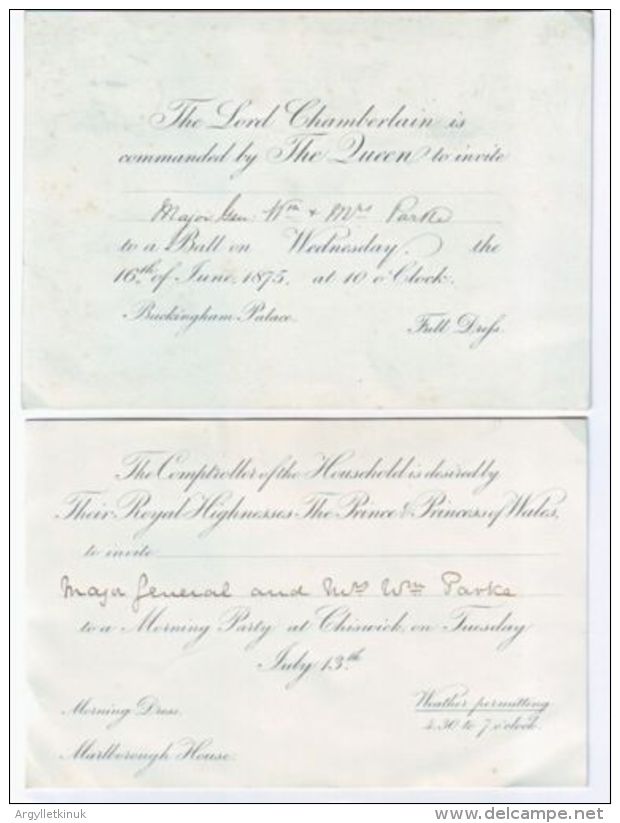 The Lord Chamberlain is
commanded by The Queen to invite
Major Gen: Wm & Mrs Parke
to a Ball on Wednesday. the
16th of June, 1875, at 10 o'Clock.
Buckingham Palace. Full Dress.
The Comptroller of the Household is desired by
Their Royal Highnesses The Prince & Princess of Wales,
to invite
Major General and Mrs Wm Parke
to a Morning Party at Chiswick, on Tuesday
July 13th
Morning Dress. Weather permitting
4.30 to 7 o'clock.
Marlborough House.
Argylletkinuk
delcampe.net